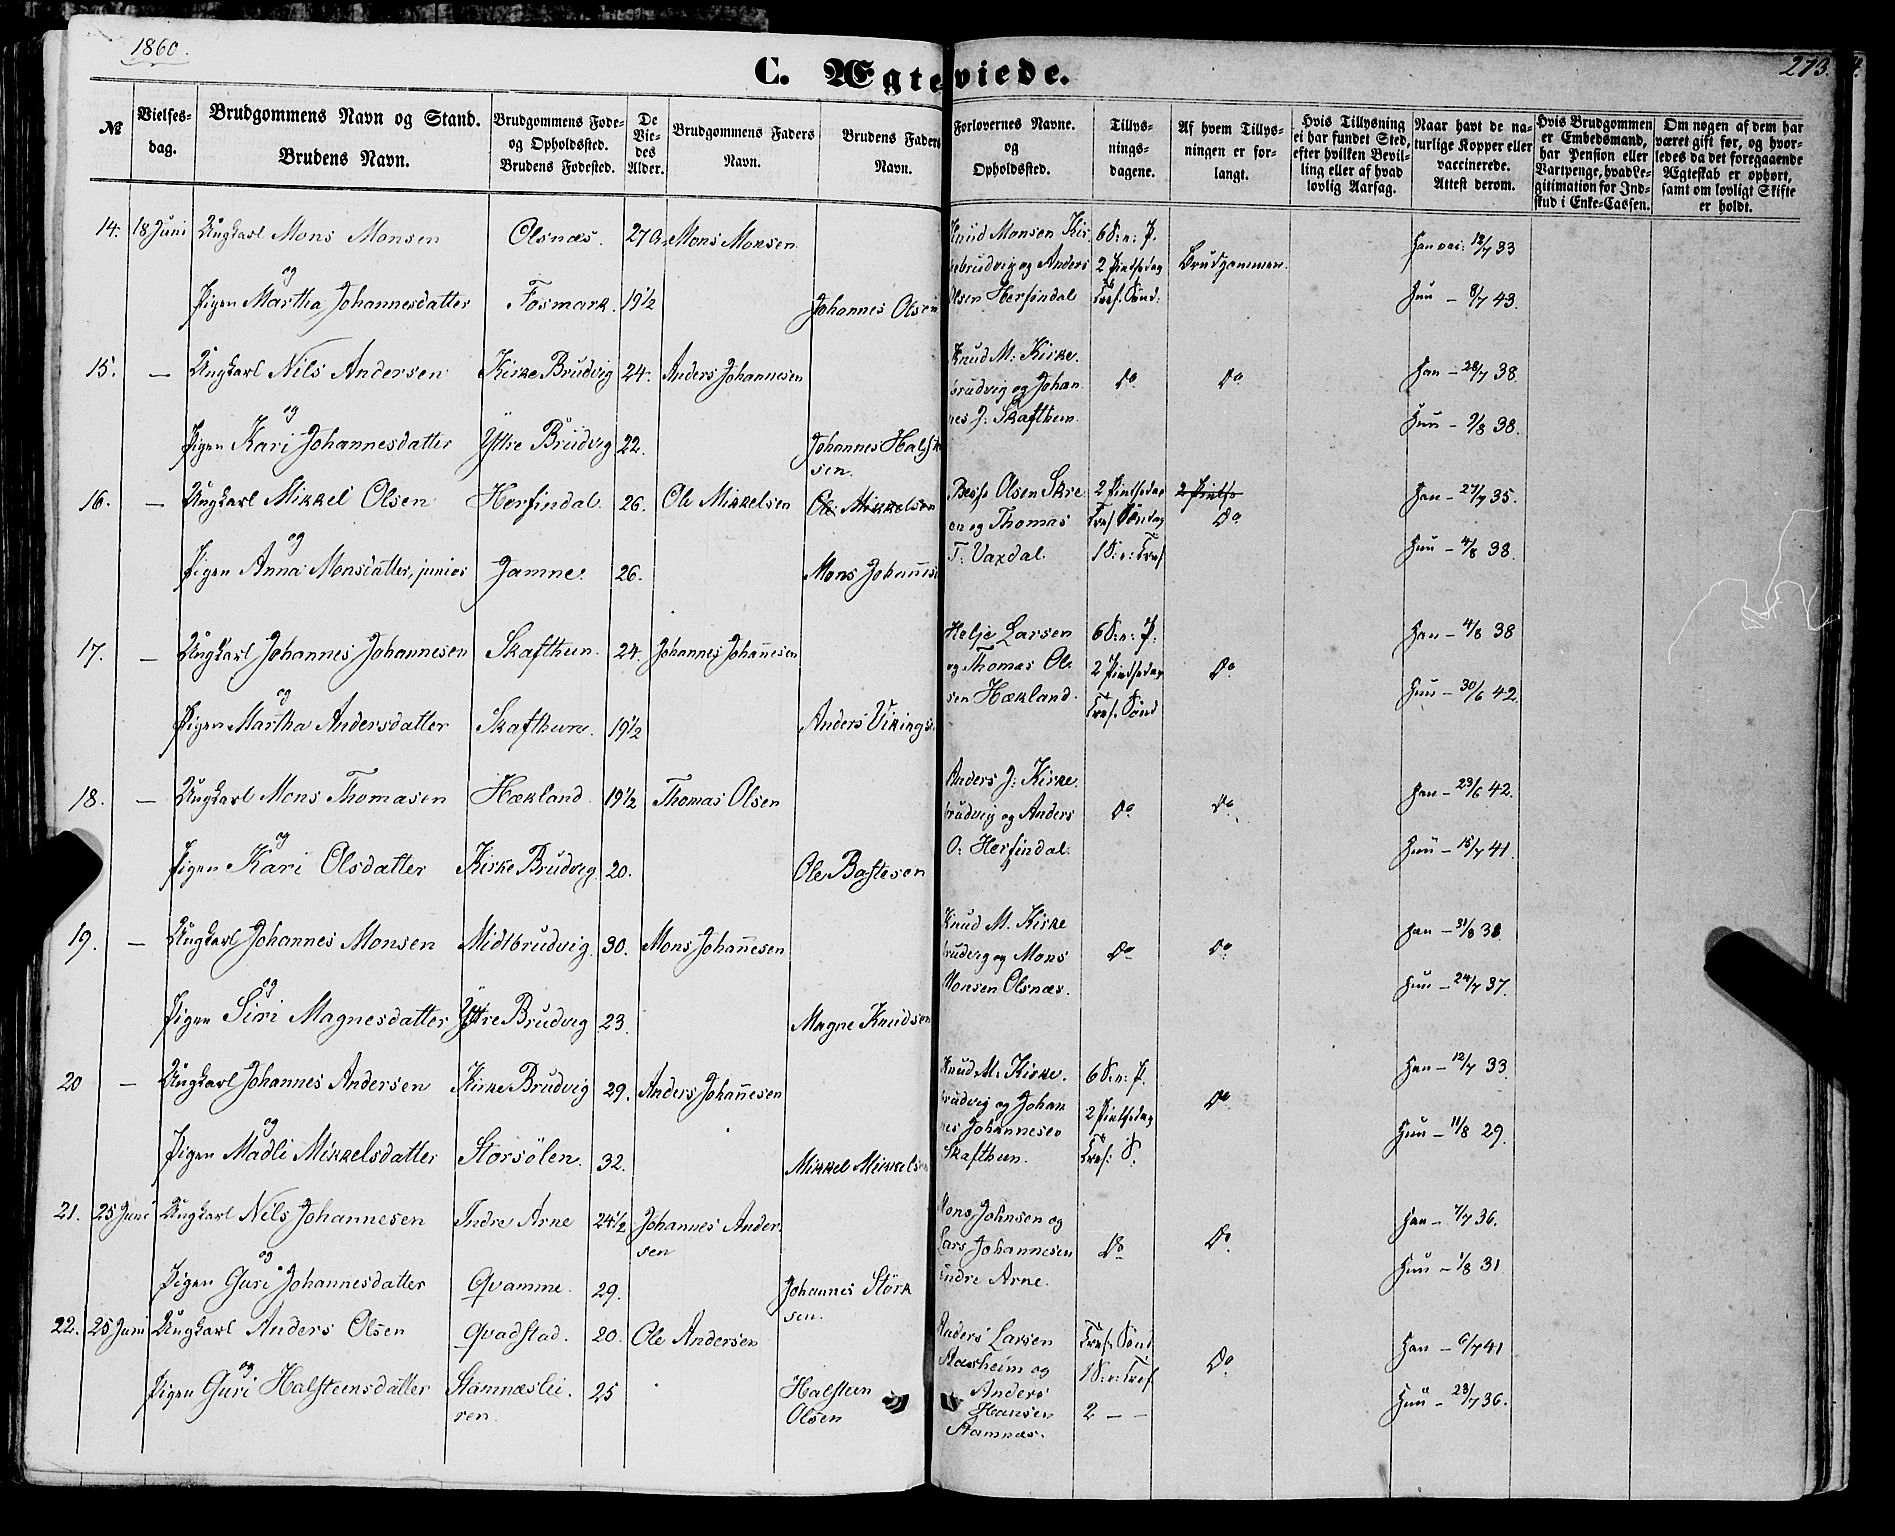 1860.
273.
C. Ægteviede.
№
Vielses-
dag.
Brudgommens Navn og Stand.
Brudens Navn.
Brudgommens Føde-
og Opholdssted.
Brudens Fødested.
De
Vie-
des
Alder.
Brudgommens Faders
Navn.
Brudens Faders
Navn.
Forlovernes Navne.
og
Opholdssted.
Tillys-
nings-
dagene.
Af hvem Tillys-
ningen er for-
langt.
Hvis Tillysning
ei har fundet Sted,
efter hvilken Bevil-
ling eller af hvad
lovlig Aarsag.
Naar havt de na-
turlige Kopper eller
vaccinerede.
Attest derom.
Hvis Brudgommen
er Embedsmand,
har Pension eller
Vartpenge, hvad Le-
gitimation for Ind-
skud i Enke-Cassen.
Om nogen af dem har
været gift før, og hvor-
ledes da det foregaaende
Ægteskab er ophørt,
samt om lovligt Skifte
er holdt.
14. 18 Juni Ungkarl Mons Monsen Olsnæs. 27 Mons Monsen Knud Monsen Kir 6 S: e: P. Brudgommen. Han vac: 12/7 33
og
kebrudvig og Anders 2 Pintsedag
Pigen Martha Johannesdatter Fosmark. 19½ Johannes Olsen Olsen Herfindal Tref. Sønd: Hun – 8/7 43.
15. – Ungkarl Nils Andersen Kirke Brudvig 24. Anders Johannesen Knud M: Kirke. Do Do Han – 28/7 38.
og
brudvig og Johan
Pigen Kari Johannesdatter Ytre Brudvig 22. Johannes Halst nes J: Skafthun. Hun – 9/8 38.
sen.
16. – Ungkarl Mikkel Olsen Herfindal. 26. Ole Mikkelsen Ole Mikkelsen Olsen Skre 2 Pintsedag 2 Pintse Han – 27/7 35.
og
en og Thomas Tref Søndag Do
Pigen Anna Monsdatter, junior Jamne. 26. Mons Johannes T. Vaxdal. 1 S: e: Tref Hun – 4/8 38.
17. – Ungkarl Johannes Johannesen Skafthun. 24. Johannes Johannesen Helje Larsen 6 S: e: P. Han – 4/8 38
og
og Thomas Ol- 2 Pintsedag Do
Pigen Martha Andersdatter Skafthun. 19½ Anders Vikings sen Hækland. Tref. Sønd Hun – 30/6 42.
18. – Ungkarl Mons Thomasen Hækland. 19½ Thomas Olsen Anders J: Kirke Do Do Han – 23/6 42.
og
brudvig og Anders
Pigen Kari Olsdatter Kirke Brudvig. 20. Ole O: Herfindal. Hun – 15/7 41.
19. – Ungkarl Johannes Monsen Midtbrudvig. 30. Mons Johannesen Knud M. Kirke Do Do Han – 31/8 31
og
brudvig og Mons
Pigen Siri Magnesdatter Ytre Brudvig 23. Magne Knudsen Monsen Olsnæs. Hun – 24/7 37.
20 – Ungkarl Johannes Andersen Kirke Brudvig 29. Anders Johannesen Knud M: Kirke. 6 S: e: P. Han – 12/7 33.
og
brudvig og Johan 2 Pintsedag Do
nes Johannesen
Pigen Madli Mikkelsdatter Storsølen. 32. Mikkel Mikkelsen Skafthun. Tref: S. Hun – 11/8 29.
21. 25 Juni Ungkarl Nils Johannesen Indre Arne 24½ Johannes Ander Mons Johnsen og Do Do Han – 7/7 36.
sen
og
Lars Johannesen
Pigen Guri Johannesdatter Qvamme. 29. Johannes Størk Indre Arne. Hun – 1/8 31
sen.
22. 25 Juni Ungkarl Anders Olsen Qvadstad. 20. Ole Andersen Anders Larsen Tref. Sønd Do Han – 6/7 41
og
og 1 S: e: Tref
Pigen Guri Halsteensdatter Stamnæslei. 25 Halsteen Anders Hun – 23/7 36.
ren. Olsen Hansen 2 – –
Stamnæs.